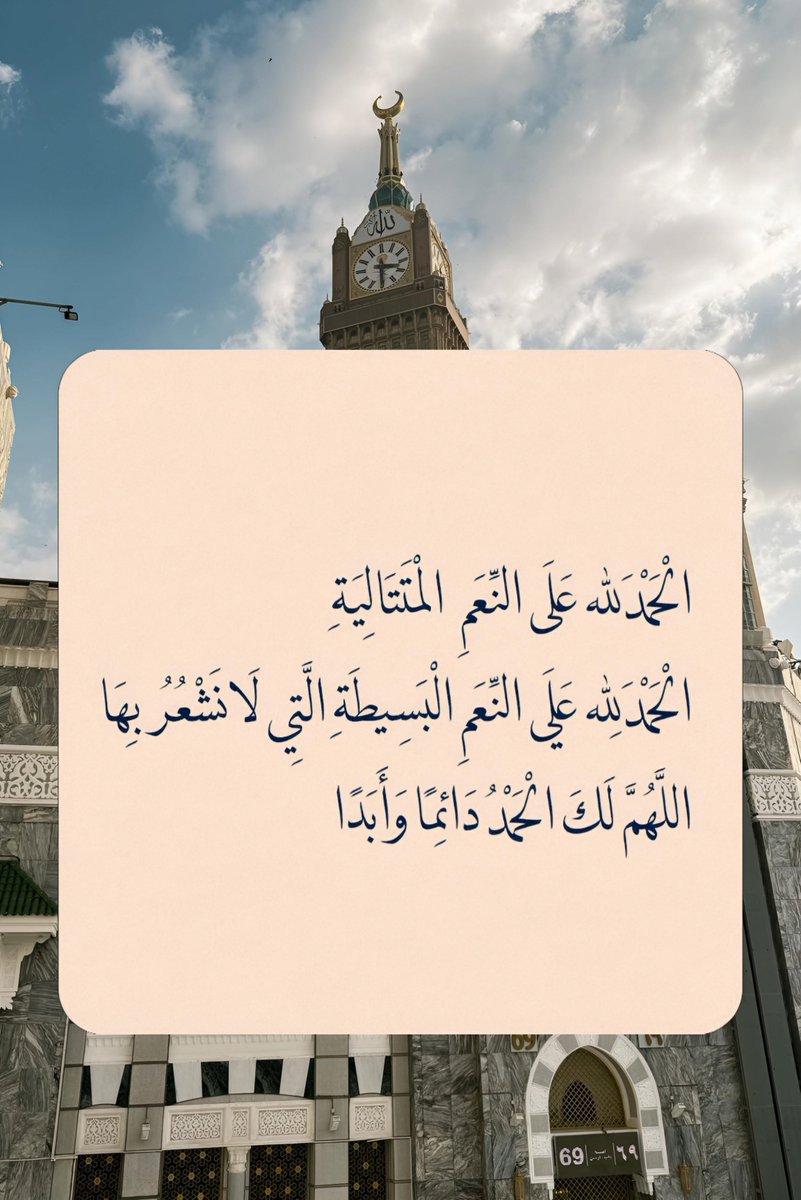 الله
الْحَمْدَلله عَلَى النِّعَمِ الْمُتَتَالِيَةِ
الْحَمْدَلِله عَلَي النِّعَمِ الْبَسِيطَةِ الَّتِي لَا نَشْعُرُ بِهَا
اللَّهُمَّ لَكَ الْحَمْدُ دَائِمًا وَأَبَدًا
69 ٦٩
69 ٦٩